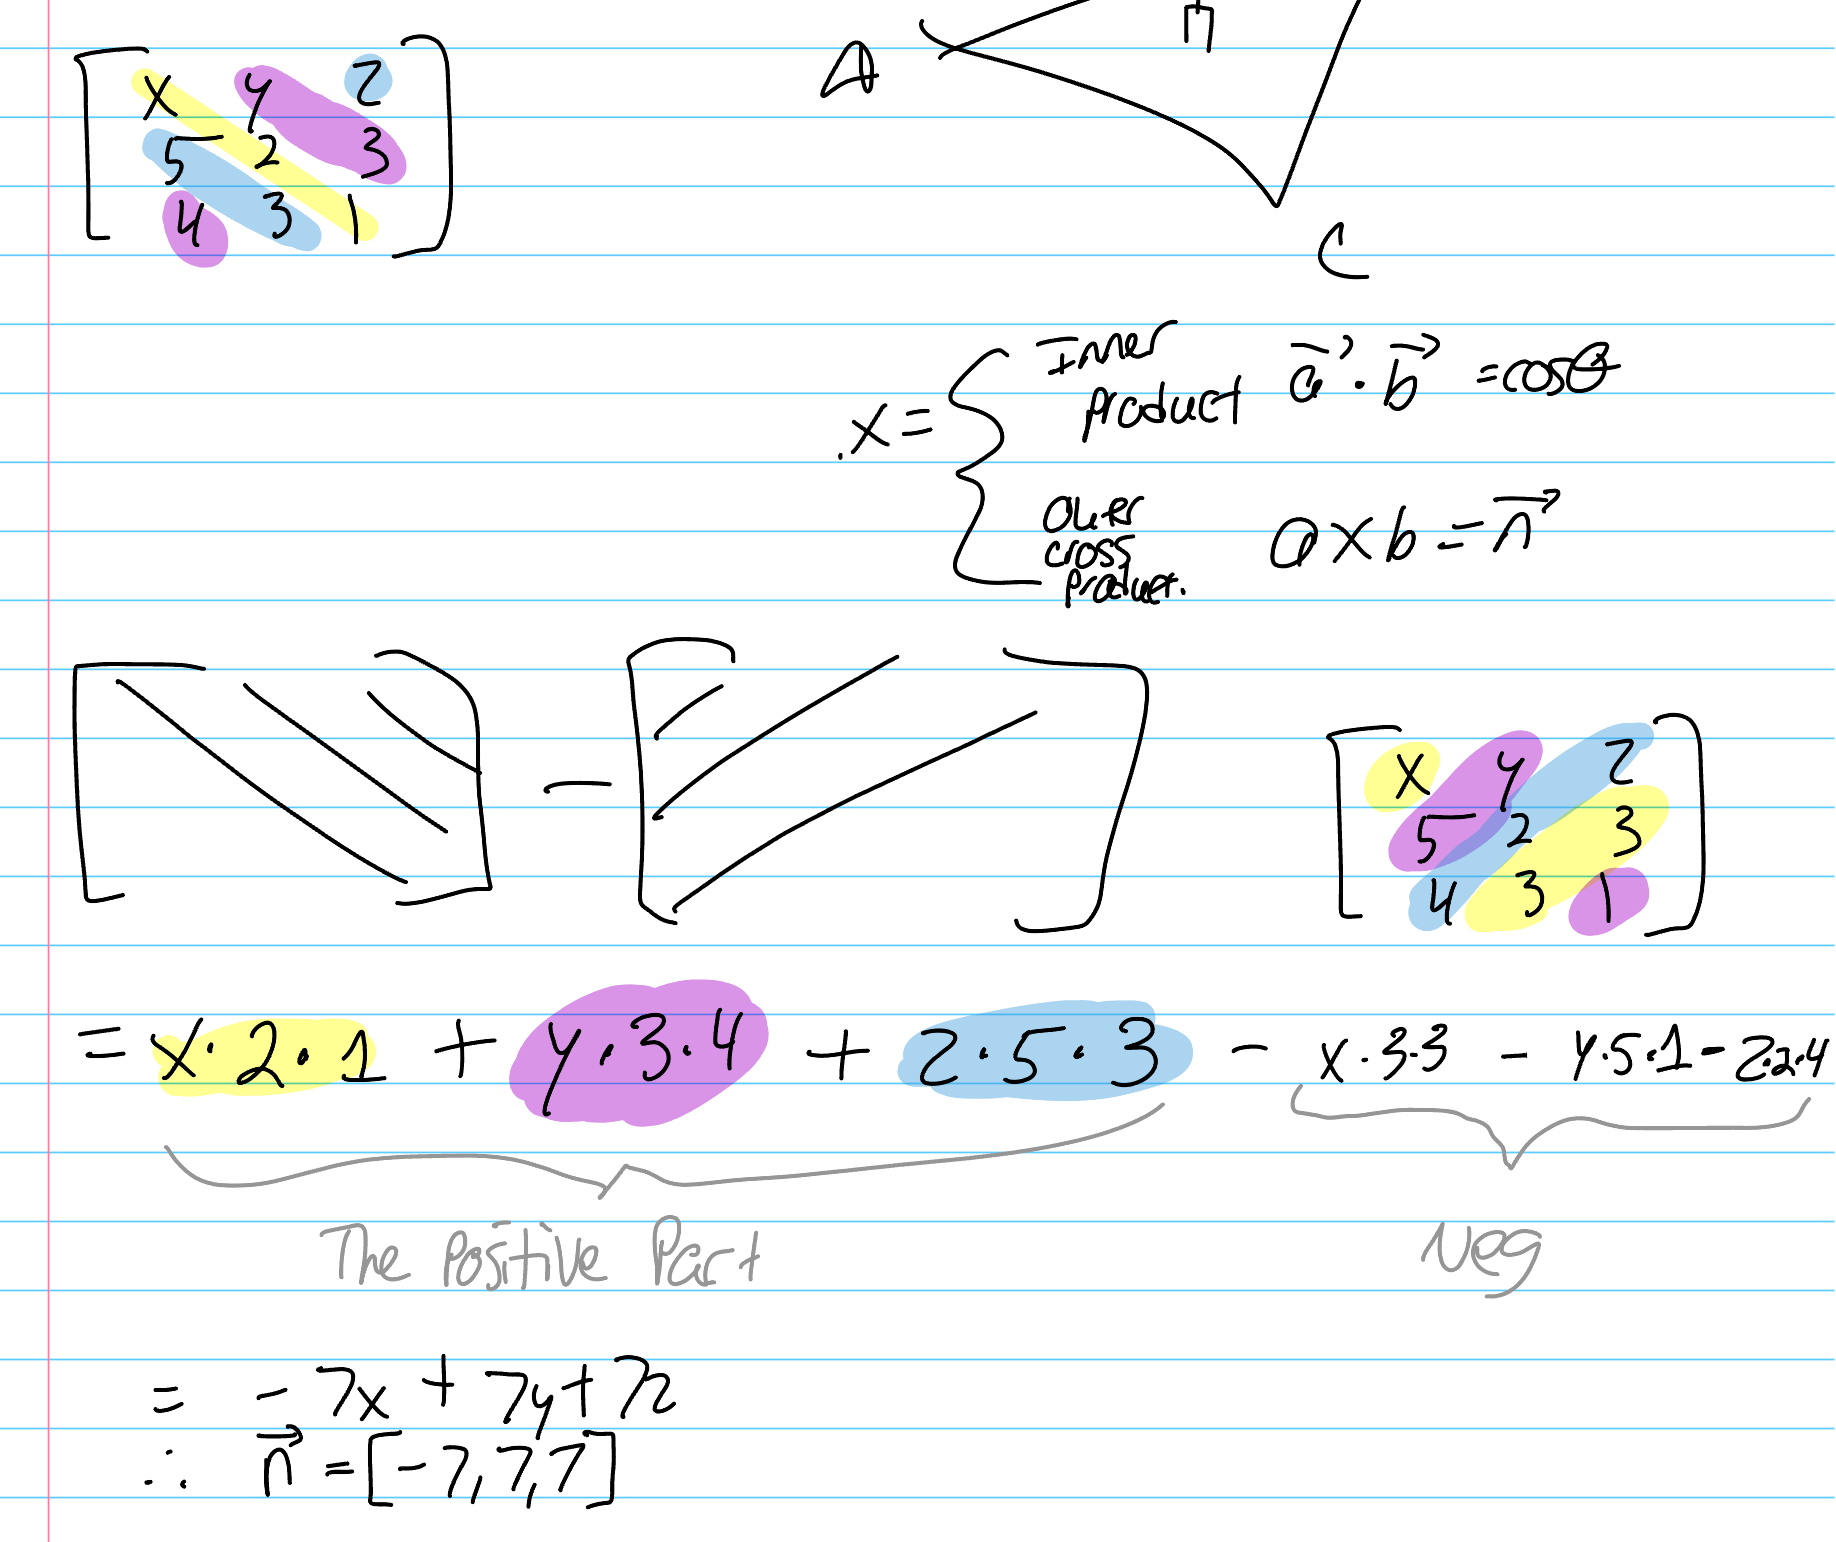 x y z
5 2 3
4 3 1
A
n
C
x = { Inner product a⃗ · b⃗ = cosθ
outer cross product. a × b = n⃗
[ ] − [ ]
x y z
5 2 3
4 3 1
= x·2·1 + y·3·4 + z·5·3 − x·3·3 − y·5·1 − z·2·4
The Positive Part
Neg
= −7x + 7y + 7z
∴ n⃗ = [−7,7,7]